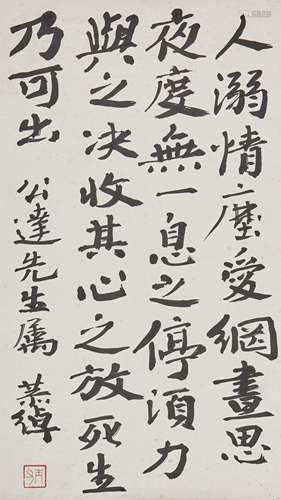 人溺情塵愛網晝思
夜度無一息之停須力
與之决收其心之放死生
乃可出
公達先生属 恭綽